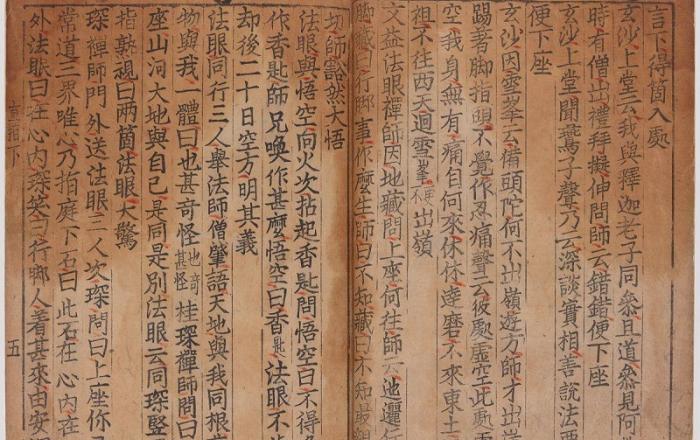 言下得箇入處
玄沙上堂云我與釋迦老子同叅且道叅見何
時有僧出禮拜擬伸問師云錯錯便下座
玄沙上堂聞鷰子聲乃云深談實相善說法
便下座
玄沙因雪峯云備頭陀何不出嶺遊方師才出
踢著脚指頭不覺作忍痛聲云彼處虛空此處
空我身無有痛自何來休休達磨不來東土
祖不往西天迴雪峯更不出嶺
文益法眼禪師因地藏問上座何往師云迤邐行
脚藏曰行脚事作麽生師曰不知藏曰不知最親
切師豁然大悟
法眼與悟空向火次拈起香匙問悟空曰不得
作香匙師兄喚作甚麽悟空曰香匙法眼不
却後二十日空方明其義
法眼同行三人舉法師僧肇語天地與我同根
物與我一體曰也甚奇怪也奇甚怪桂琛禪師問曰
座山河大地與自己是同是別法眼云同琛竪
指熟視曰兩箇法眼大驚
琛禪師門外送法眼三人次琛問曰上座你
常道三界唯心乃指庭下石曰此石在心內在
外法眼曰在心內琛笑曰行脚人着甚來由安
直指下
五